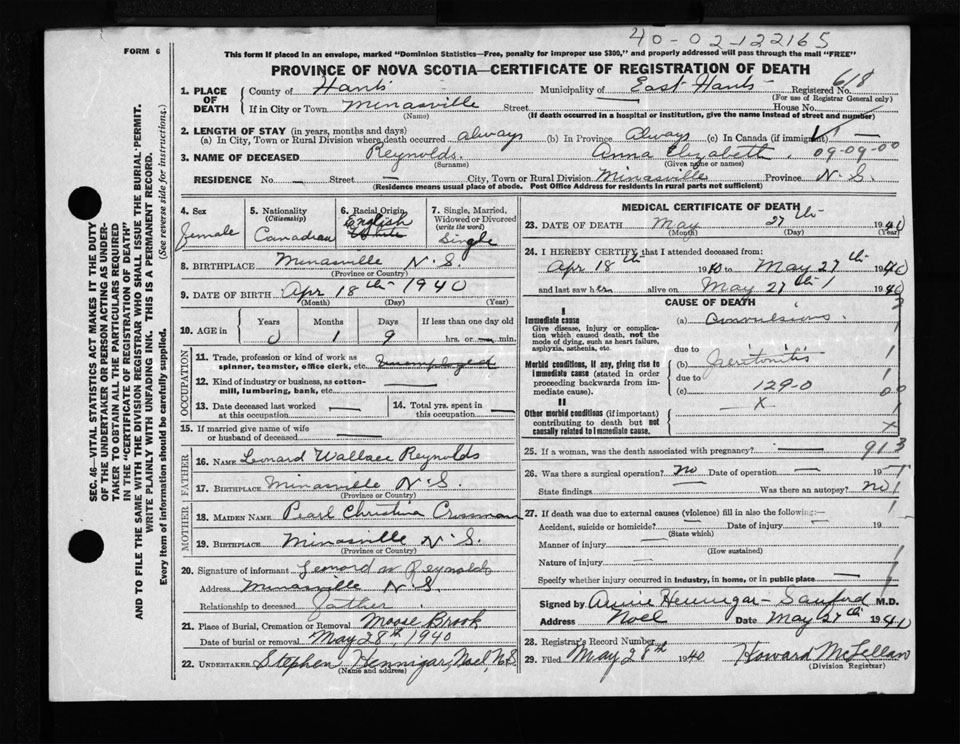 40-02-122165
FORM 6
This form if placed in an envelope, marked "Dominion Statistics—Free, penalty for improper use $300," and properly addressed will pass through the mail "FREE"
PROVINCE OF NOVA SCOTIA—CERTIFICATE OF REGISTRATION OF DEATH
1. PLACE OF DEATH County of Hants Municipality of East Hants Registered No. 618
(For use of Registrar General only)
If in City or Town Minasville Street House No.
(Name) (If death occurred in a hospital or institution, give the name instead of street and number)
2. LENGTH OF STAY (in years, months and days)
(a) In City, Town or Rural Division where death occurred always (b) In Province Always (c) In Canada (if immigrant)
3. NAME OF DECEASED Reynolds. Anna Elizabeth. 09-09-00
(Surname) (Given name or names)
RESIDENCE No. — Street — City, Town or Rural Division Minasville Province N.S.
(Residence means usual place of abode. Post Office Address for residents in rural parts not sufficient)
SEC. 46—VITAL STATISTICS ACT MAKES IT THE DUTY
OF THE UNDERTAKER OR PERSON ACTING AS UNDER-
TAKER TO OBTAIN ALL THE PARTICULARS REQUIRED
IN THE "CERTIFICATE OF REGISTRATION OF DEATH"
AND TO FILE THE SAME WITH THE DIVISION REGISTRAR WHO SHALL ISSUE THE BURIAL-PERMIT.
WRITE PLAINLY WITH UNFADING INK. THIS IS A PERMANENT RECORD.
Every item of information should be carefully supplied. (See reverse side for instructions.)
4. Sex female
5. Nationality (Citizenship) Canadian
6. Racial Origin English White
7. Single, Married, Widowed or Divorced (write the word) Single
8. BIRTHPLACE Minasville N.S.
(Province or Country)
9. DATE OF BIRTH Apr 18th 1940
(Month) (Day) (Year)
10. AGE in Years Months Days If less than one day old
0 1 9 hrs. or min.
OCCUPATION
11. Trade, profession or kind of work as spinner, teamster, office clerk, etc. Unemployed
12. Kind of industry or business, as cotton-mill, lumbering, bank, etc. —
13. Date deceased last worked at this occupation — 14. Total yrs. spent in this occupation —
15. If married give name of wife or husband of deceased —
FATHER
16. NAME Leonard Wallace Reynolds
17. BIRTHPLACE Minasville N.S.
(Province or Country)
MOTHER
18. MAIDEN NAME Pearl Christina Crossman
19. BIRTHPLACE Minasville N.S.
(Province or Country)
20. Signature of informant Leonard W Reynolds
Address Minasville N.S.
Relationship to deceased father
21. Place of Burial, Cremation or Removal Moose Brook
Date of burial or removal May 28th, 1940
22. UNDERTAKER Stephen Hennigar, Noel, N.S.
(Name and address)
MEDICAL CERTIFICATE OF DEATH
23. DATE OF DEATH May 27th 1940
(Month) (Day) (Year)
24. I HEREBY CERTIFY that I attended deceased from:
Apr 18th 1940 to May 27th 1940
and last saw her alive on May 27th 1940
CAUSE OF DEATH
I
Immediate cause (a) Convulsions
Give disease, injury or complication which caused death, not the mode of dying, such as heart failure, asphyxia, asthenia, etc.
due to
Morbid conditions, if any, giving rise to immediate cause (stated in order proceeding backwards from immediate cause). (b) Peritonitis
due to
(c) 129-0
II
Other morbid conditions (if important) contributing to death but not causally related to immediate cause. X
25. If a woman, was the death associated with pregnancy? — 913
26. Was there a surgical operation? no Date of operation — 19
State findings — Was there an autopsy? no
27. If death was due to external causes (violence) fill in also the following:—
Accident, suicide or homicide? Date of injury 19
(State which)
Manner of injury —
(How sustained)
Nature of injury —
Specify whether injury occurred in industry, in home, or in public place —
Signed by Annie Hennigar-Sanford M.D.
Address Noel Date May 27th 1940
28. Registrar's Record Number
29. Filed May 28th 1940 Howard McLellan
(Division Registrar)